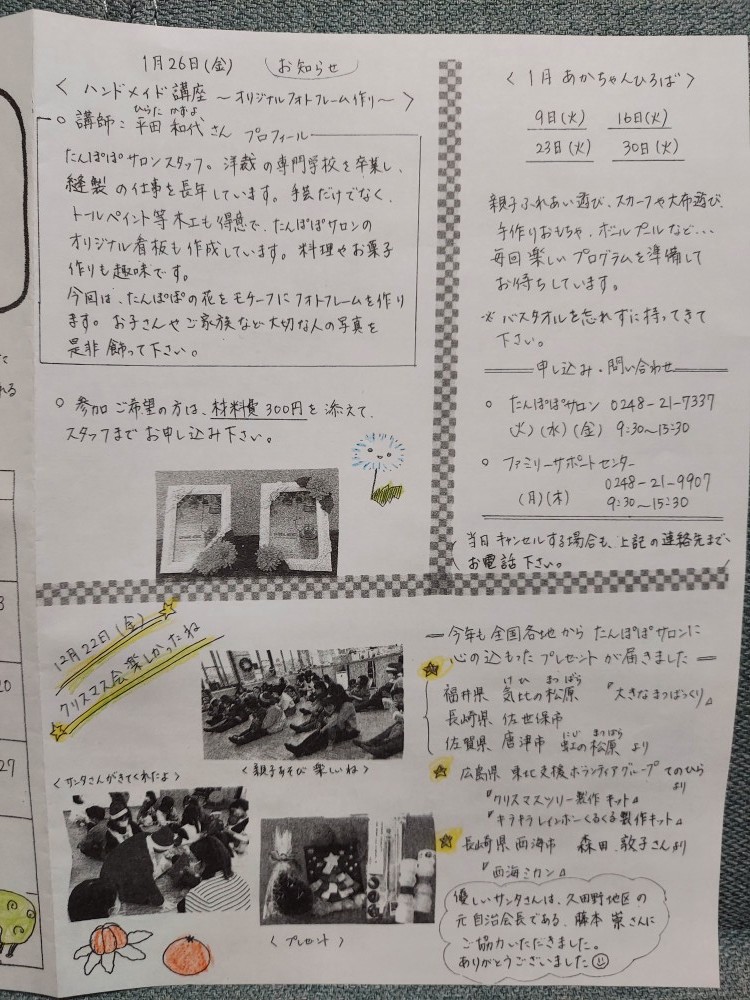 1月26日(金) お知らせ
< ハンドメイド講座 〜オリジナルフォトフレーム作り〜 >
○ 講師: 平田 和代さん プロフィール
ひらた かずよ
たんぽぽサロンスタッフ。洋裁の専門学校を卒業し、
縫製の仕事を長年しています。手芸だけでなく、
トールペイント等木工も得意で、たんぽぽサロンの
オリジナル看板も作成しています。料理やお菓子
作りも趣味です。
今回は、たんぽぽの花をモチーフにフォトフレームを作り
ます。お子さんやご家族など大切な人の写真を
是非飾って下さい。
○ 参加ご希望の方は、材料費300円を添えて、
スタッフまでお申し込み下さい。
< 1月 あかちゃんひろば >
9日(火) 16日(火)
23日(火) 30日(火)
親子ふれあい遊び、スカーフや大布遊び、
手作りおもちゃ、ボールプールなど…
毎回楽しいプログラムを準備して
お待ちしています。
※ バスタオルを忘れずに持ってきて
下さい。
申し込み・問い合わせ
○ たんぽぽサロン 0248-21-7337
(火)(水)(金) 9:30〜15:30
○ ファミリーサポートセンター
0248-21-9907
(月)(木) 9:30〜15:30
当日キャンセルする場合も、上記の連絡先まで、
お電話下さい。
12月22日(金)
クリスマス会楽しかったね
< 親子あそび 楽しいね >
< サンタさんがきてくれたよ >
< プレゼント >
今年も全国各地からたんぽぽサロンに
心の込もったプレゼントが届きました
けひ まつばら
福井県 気比の松原 『大きなまつぼっくり』
長崎県 佐世保市
にじ まつばら
佐賀県 唐津市 虹の松原 より
広島県 東北支援ボランティアグループ てのひら
より
『クリスマスツリー製作キット』
『キラキラレインボーくるくる製作キット』
長崎県西海市 森田 敦子さんより
『西海ミカン』
優しいサンタさんは、久田野地区の
元自治会長である、藤本 崇さんに
ご協力いただきました。
ありがとうございました
8
20
27